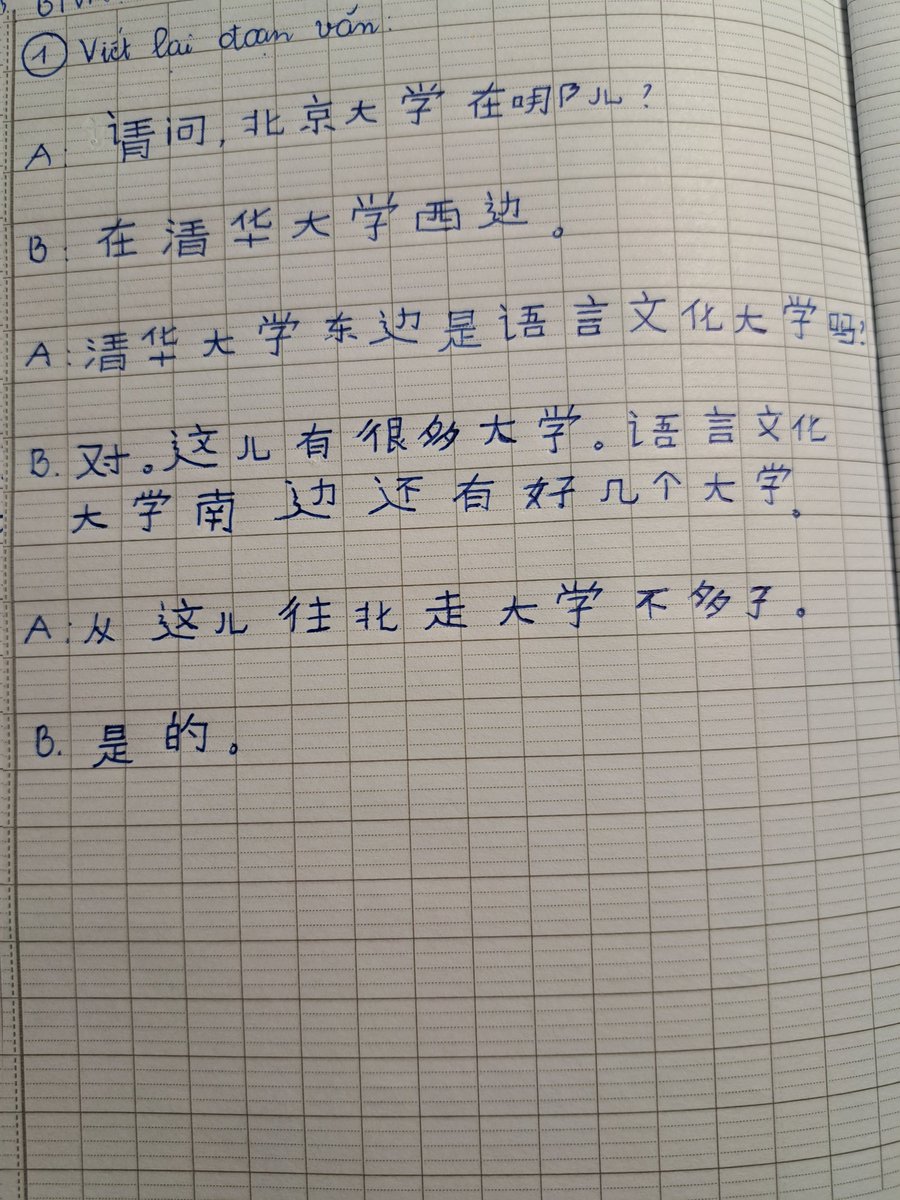 ① Viết lại đoạn văn:
A: 请问, 北京大学在哪儿?
B: 在清华大学西边。
A: 清华大学东边是语言文化大学吗?
B. 对。这儿有很多大学。语言文化
大学南边还有好几个大学。
A: 从这儿往北走大学不多了。
B. 是的。